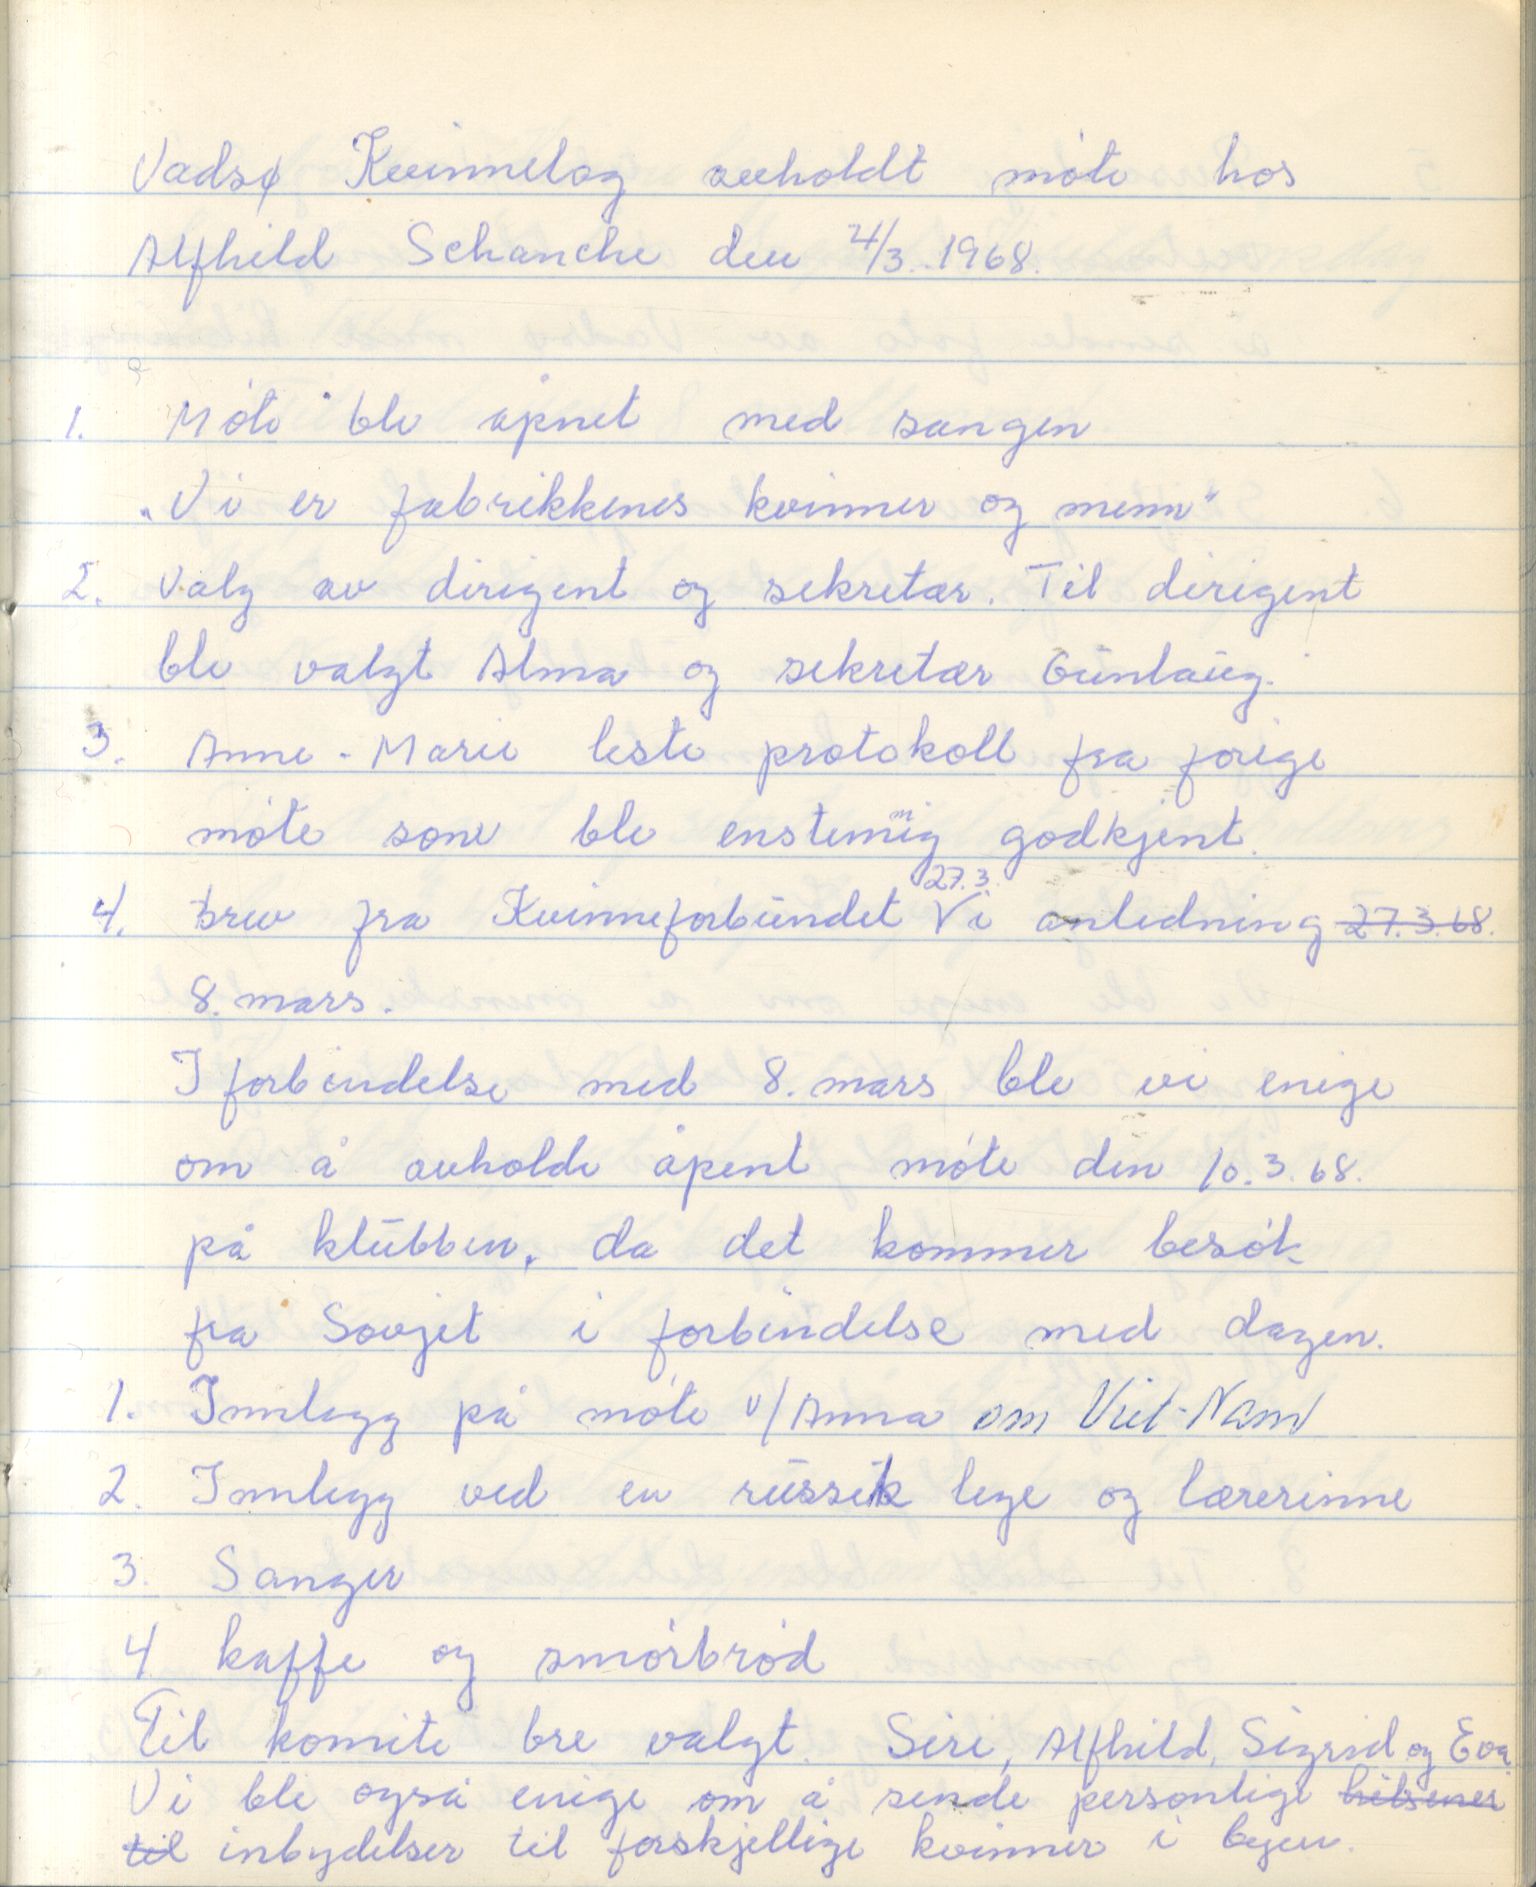 Vadsø Kvinnelag avholdt møte hos
Alfhild Schanche den 4/3. 1968.
1. Møte ble åpnet med sangen
„Vi er fabrikkenes kvinner og menn"
2. Valg av dirigent og sekretær. Til dirigent
ble valgt Alma og sekretær Gunlaug.
3. Anne-Marie leste protokoll fra forige
møte som ble enstemmig godkjent.
27.3.
4. Brev fra Kvinneforbundet Vi anledning 27.3.68.
8. mars.
I forbindelse med 8. mars ble vi enige
om å avholde åpent møte den 10.3.68.
på klubben, da det kommer besøk
fra Sovjet i forbindelse med dagen.
1. Innlegg på møte v/Anna om Viet-Nam
2. Innlegg ved en russik lege og lærerinne
3. Sanger
4 kaffe og smørbrød
Til komite bre valgt. Siri, Alfhild, Sigrid og Eva.
Vi ble også enige om å sende personlige hilsener
til inbydelser til forskjellige kvinner i byen.